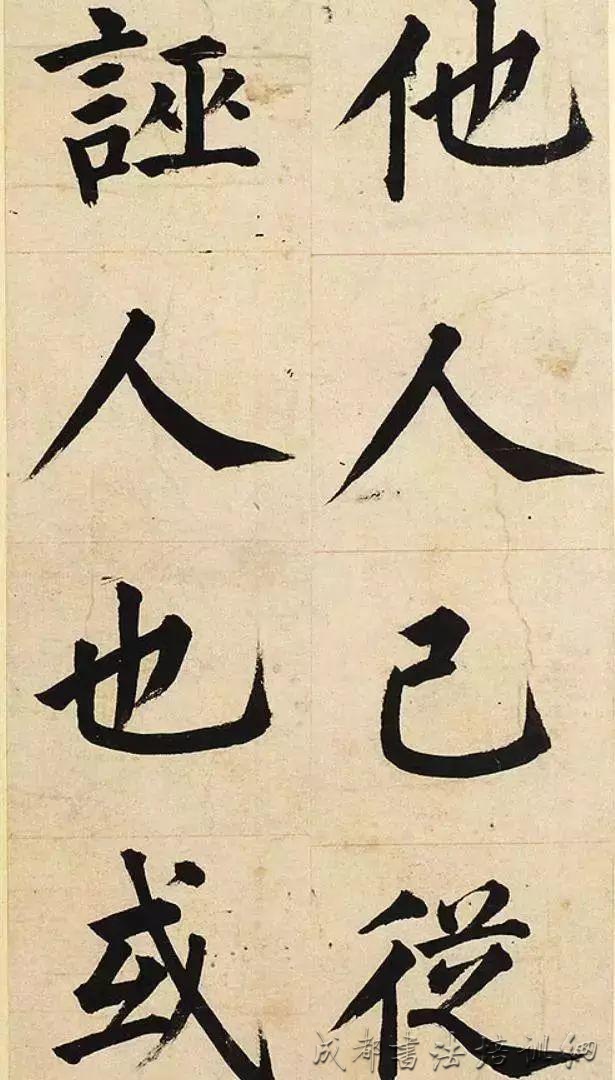 他人己從
誣人也或
成都書法培训網